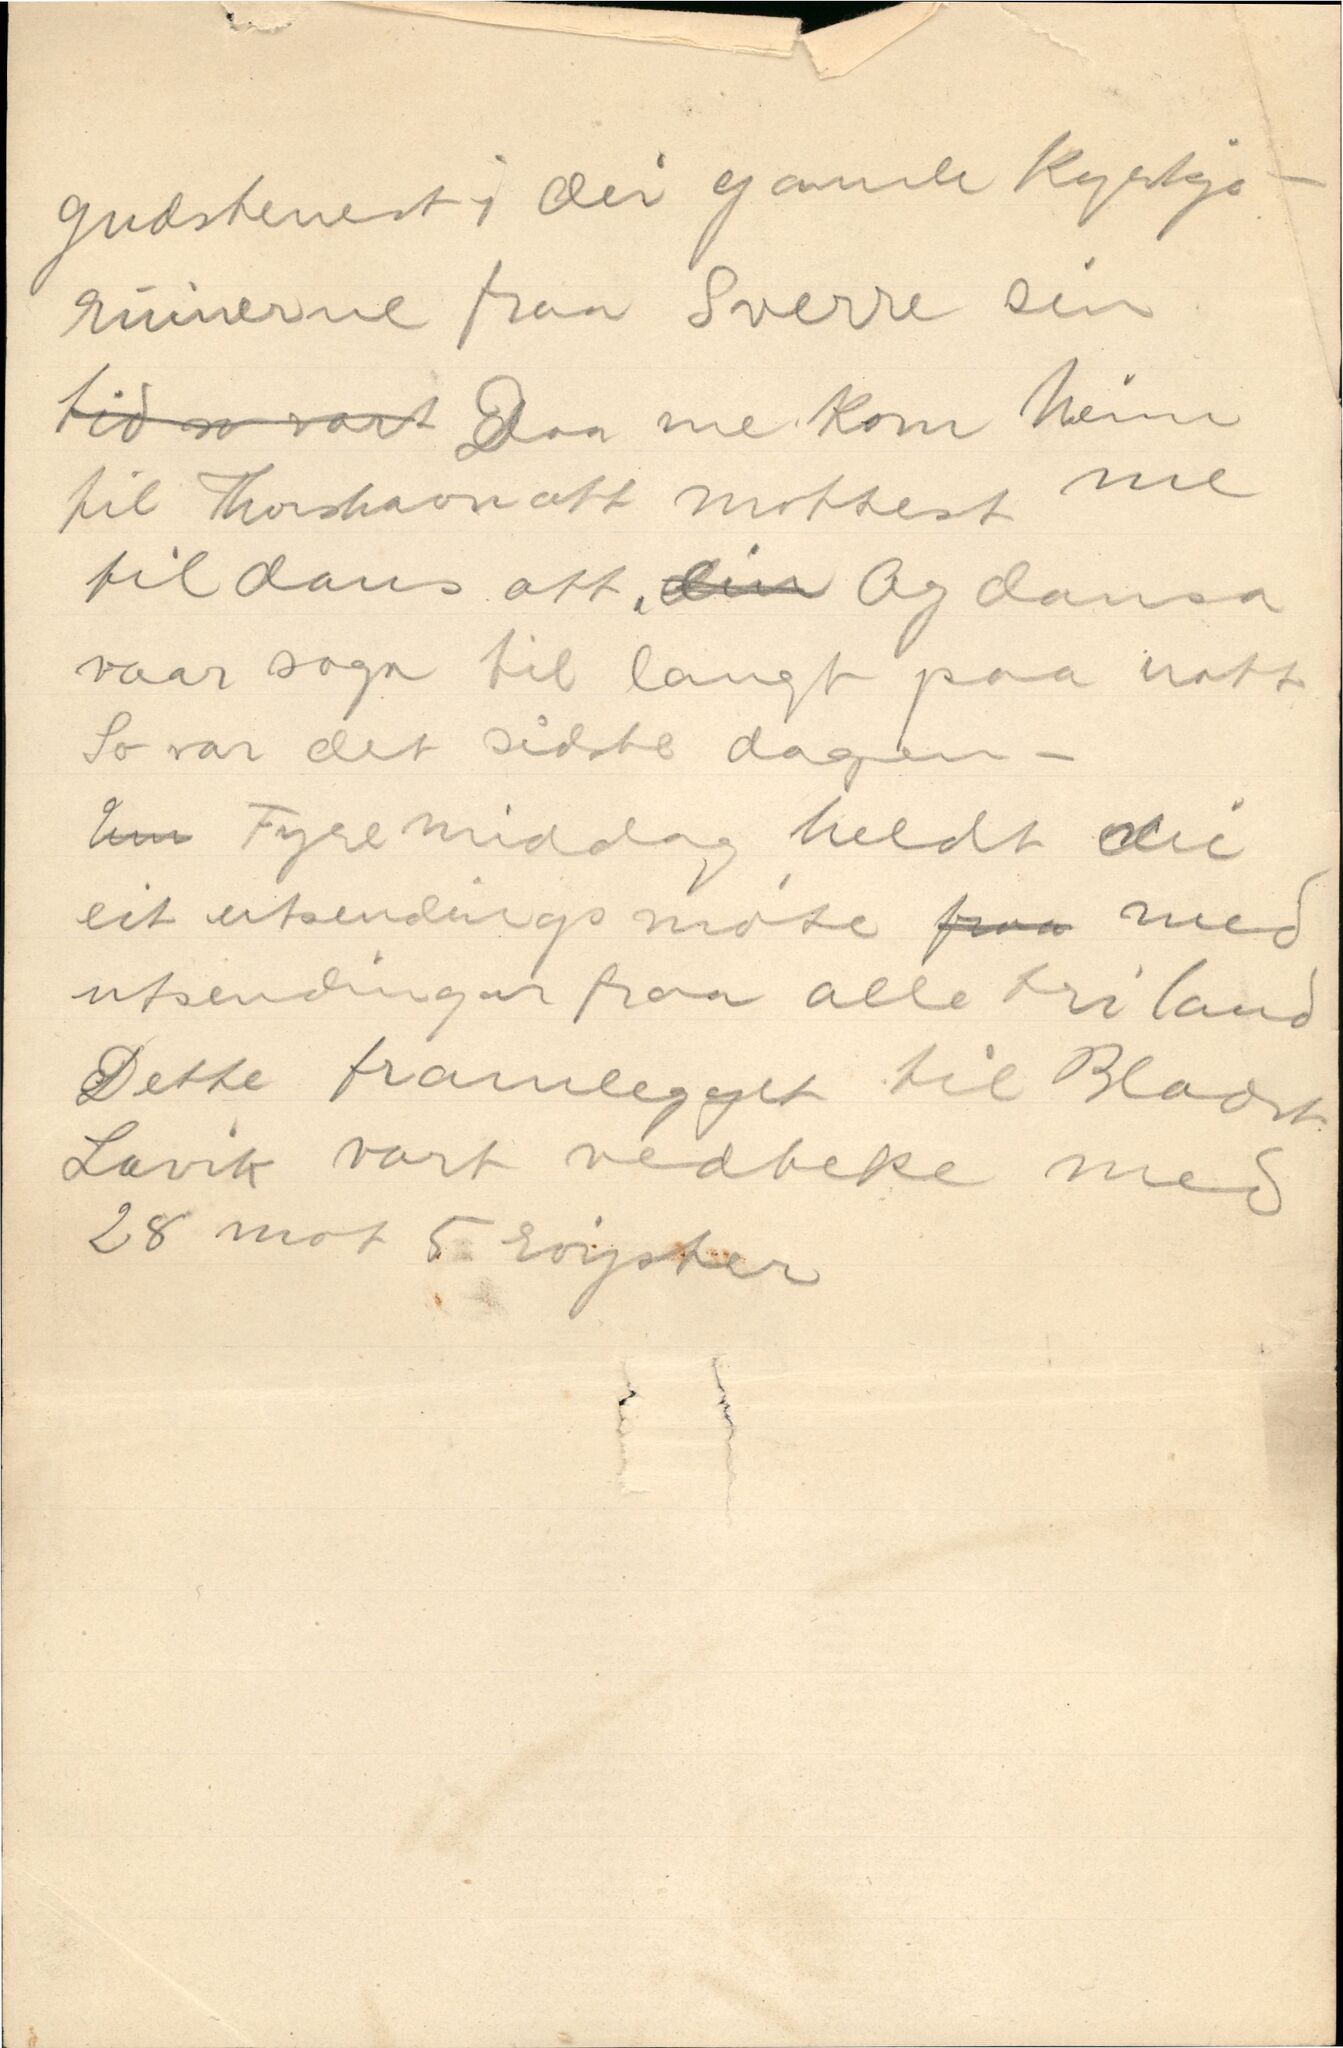 gudstenest i dei gamle Kyrkjo-
ruinerne fraa Sverre sin
tid so vart Daa me kom heim
til Thorshavn att møttest me
til dans att. Og dansa
vaar soga til langt paa natt
So var det sidste dagen -
Fyremiddag heldt dei
eit utsendingsmóte fraa med
utsendingar fraa alle tri land
Dette framlegget til Bladst.
Lavik vart vedteke med
28 mot 5 röyster